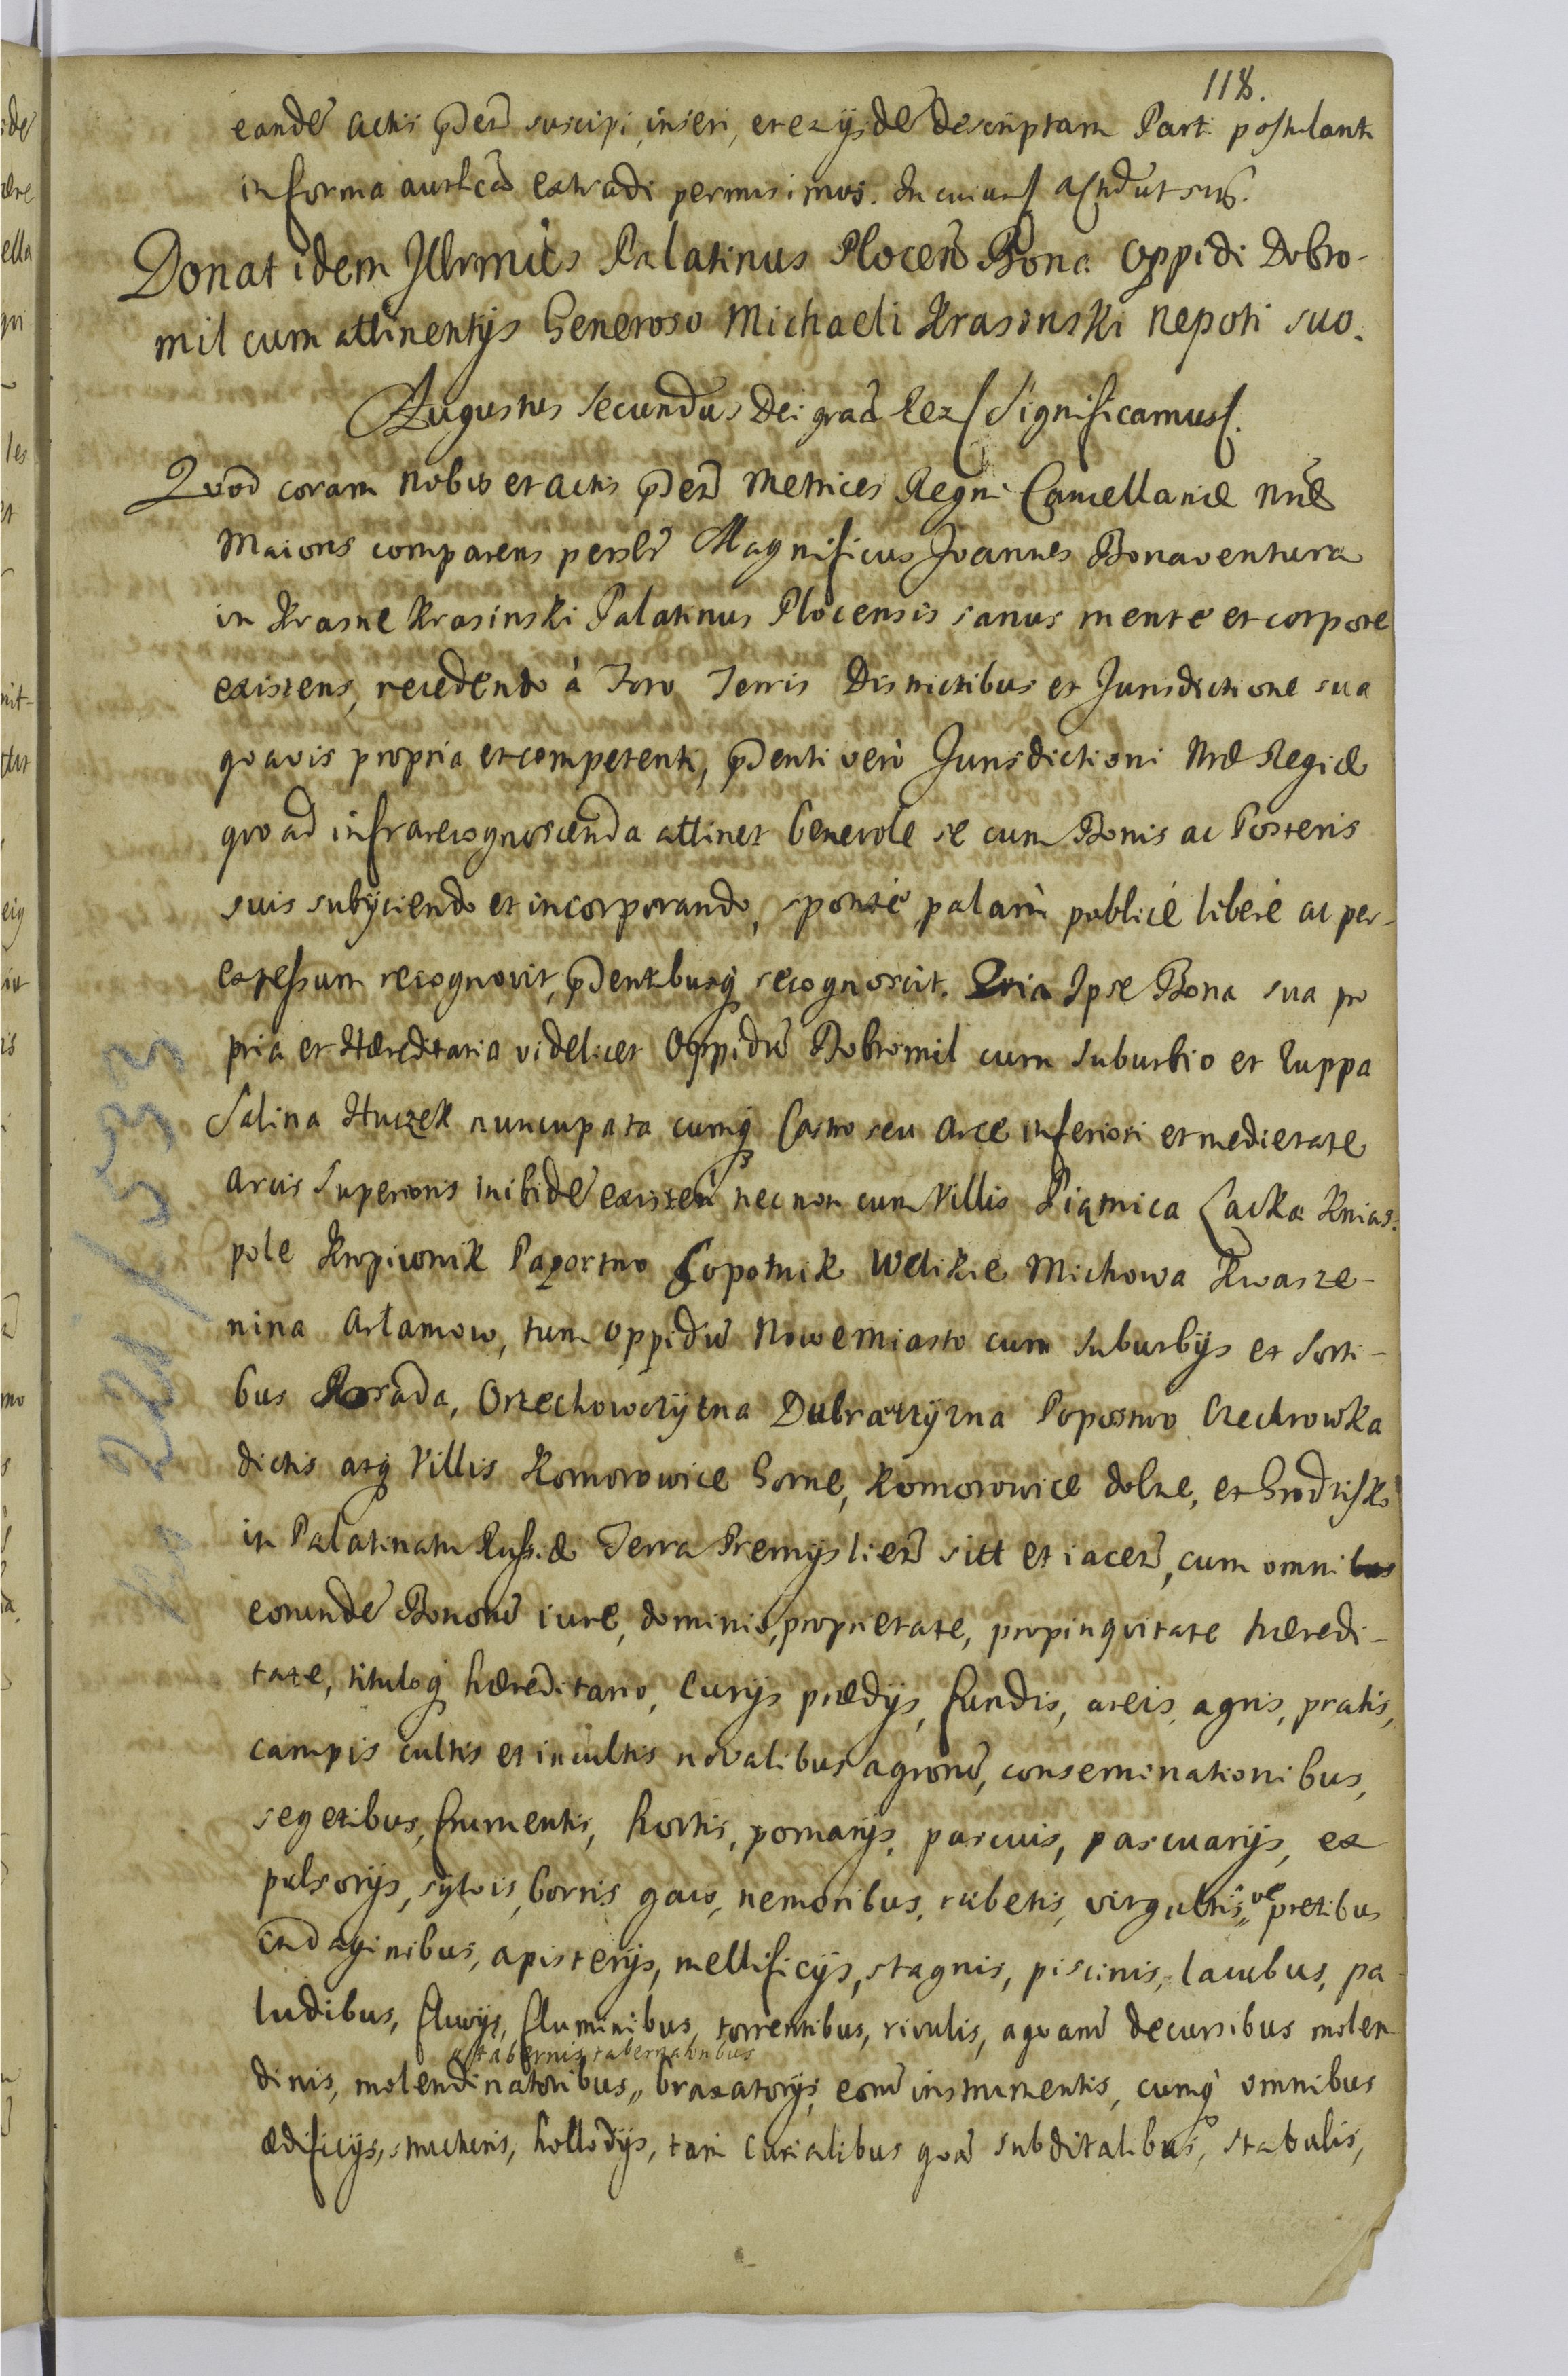 118.
eandē actis p̄sen̄ suscipi, inseri, et ex ijsdē descriptam Parti postulanti
in forma autēca extradi permisimus. In cuius f. act̄ d ut su͠p.
Donat idem Illrmūs Palatinus Plocen̄ Bona Oppidi Dobro-
mil cum attinentijs Generoso Michaeli Krasinski Nepoti suo.
Augustus Secundus Dei grā Rex f. Significamus f.
Quod coram Nobis et Actis p̄sen̄ Metrices Regni Cancellariæ Nræ
Maioris comparens persl̄r Magnificus Joannes Bonaventura
in Krasne Krasinski Palatinus Plocensis sanus mente et corpore
existens, recedendo à Foro Terris Districtibus et Jurisdictione sua
quavis propria et competenti, p̄senti verò Jurisdictioni Nræ Regiæ
quo ad infrarecognoscenda attinet benevole se cum Bonis ac Posteris
suis subijciendo et incorporando, sponte palam publicè liberè ac per-
expressum recognovit, p̄sentibusq̨ recognoscit. Quia Ipse Bona sua pro
pria et Hæreditaria videlicet Oppidū Dobromil cum suburbio et Zuppa
Salina Huczek nuncupata cumq̨ Castro seu Arce inferiori et medietate
Arcis Superioris inibidē existen̄ nec non cum Villis Piątnica Lacka Knias-
pole Kropiwnik Paportno Łopotnik Welikie Michowa Kwasze-
nina Arłamow, tum Oppidū Nowemiasto cum Suburbijs et Sorti-
bus Posada, Orzechowczyzna Dubrawczyzna Popostwo Czechowka
dictis atq̨ Villis Komorowice Gorne, Komorowice dolne, et Grodzisko
in Palatinatu Russiæ Terra Premyslien̄ sitt et iacen̄, cum omnibus
eorundē Bonorū iure, dominio, proprietate, propinquitate hæredi-
tate, tituloq̨ hæreditario, Curijs prædijs, fundis, areis, agris, pratis,
campis cultis et incultis novalibus agrorū, conseminationibus,
segetibus, frumentis, hortis, pomarijs, pascuis, pascuarijs, ex
pulsorijs, sylvis, borris gaijs, nemoribus, rubetis, virgultis, ve pretibus
indaginibus, apisterijs, mellificijs, stagnis, piscinis, lacubus, pa-
ludibus, fluvijs, fluminibus, torrentibus, rivulis, aquarū decursibus molen
" tabernis tabernatoribus
dinis, molendinatoribus, " braxatorijs, eorū instrumentis, cumq̨ omnibus
ædificijs, structuris, hollodijs, tam Curialibus quā subditalibus, stabulis,
221/533